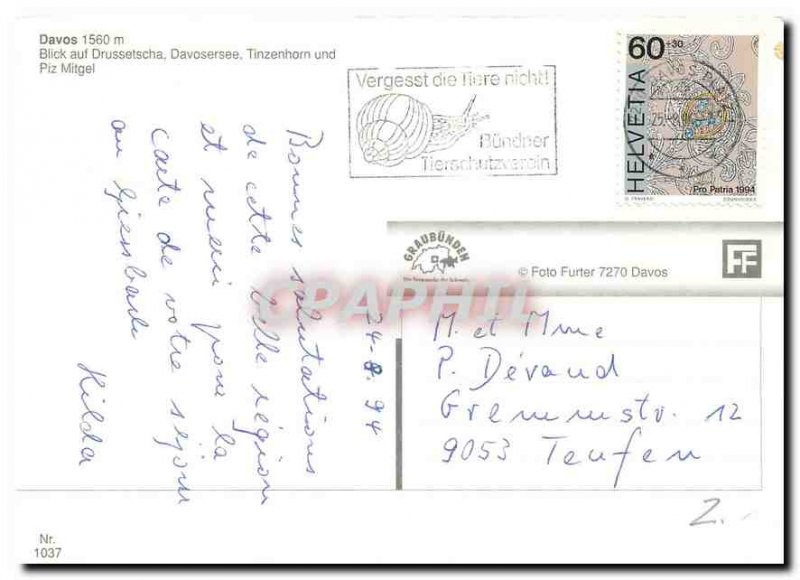 Davos 1560 m
Blick auf Drussetscha, Davosersee, Tinzenhorn und
Piz Mitgel
Vergesst die Tiere nicht!
Bündner
Tierschutzverein
60+30
HELVETIA
Pro Patria 1994
GRAUBÜNDEN
© Foto Furter 7270 Davos
FF
CPAPHIL
24-8.94
Bonnes salutations
de cette belle région
et merci pour la
carte de votre séjour
au Giessbach
Hilda
M. et Mme
P. Dévaud
Gremmstr. 12
9053 Teufen
2.-
Nr.
1037